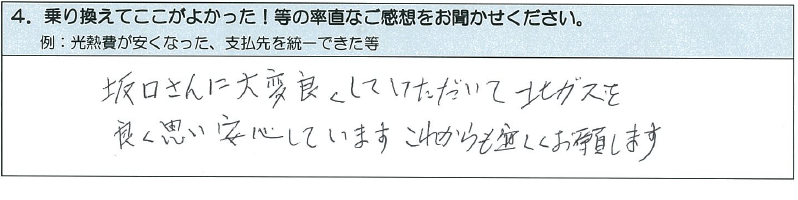 4. 乗り換えてここがよかった！等の率直なご感想をお聞かせください。
例：光熱費が安くなった、支払先を統一できた等
坂口さんに大変良くしていただいて北ガスを
良く思い安心しています これからも宜しくお願します